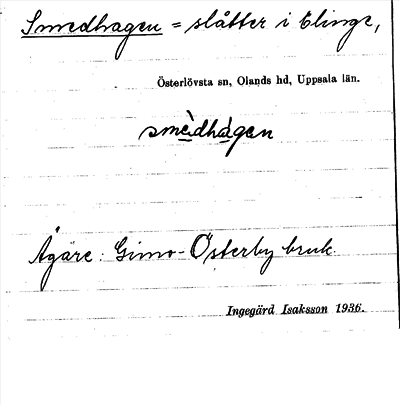 Smedhagen = slåtter i Elinge,
Österlövsta sn, Olands hd, Uppsala län.
smèdhàgen
Ägare: Gimo-Österby bruk.
Ingegärd Isaksson 1936.